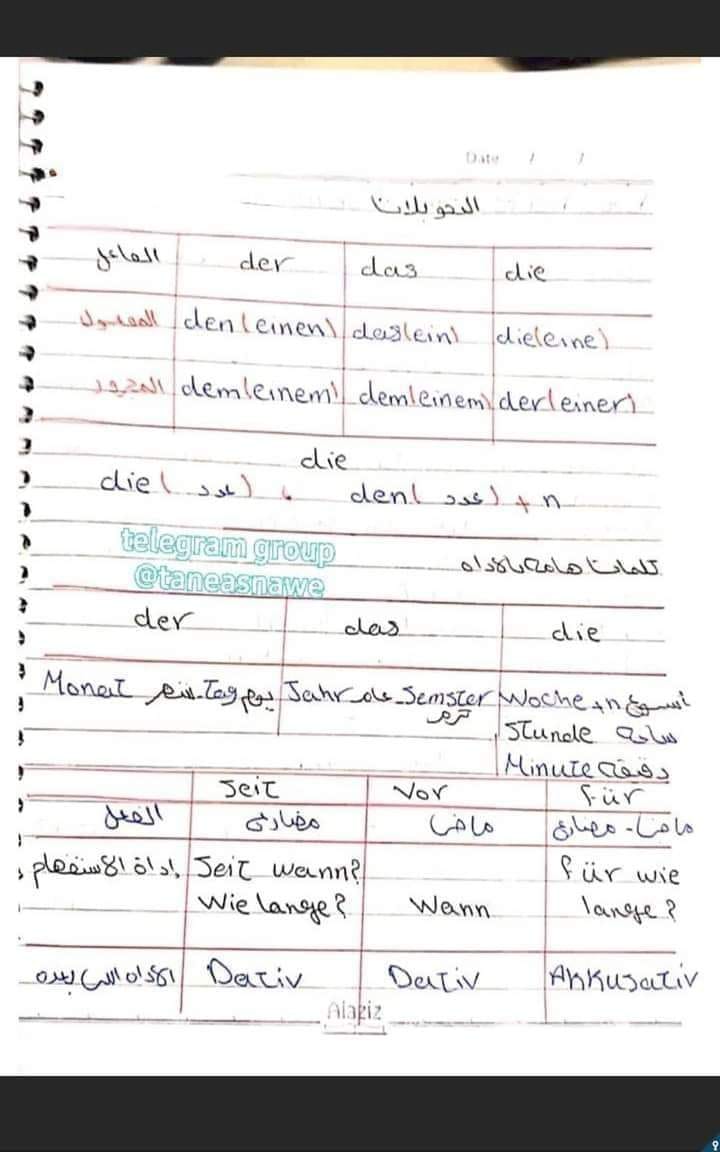 Date / /
التحويلات
الفاعل der das die
المفعول den(einen) das(ein) die(eine)
المجرور dem(einem) dem(einem) der(einer)
die
die ( عدد ) ، den( عدد ) + n
telegram group
@taneasnawe
كلمات هامة بالاداه
der das die
Monat شهر - Tag يوم Jahr عام - Semster ترم Woche + n أسبوع
Stunde ساعة
Minute دقيقة
Seit Vor für
الفعل مضارع ماضى ماضى - مضارع
اداة الاستفهام Seit wann? für wie
Wie lange? Wann lange?
الاداه اللى بعده Dativ Dativ Akkusativ
Alaziz